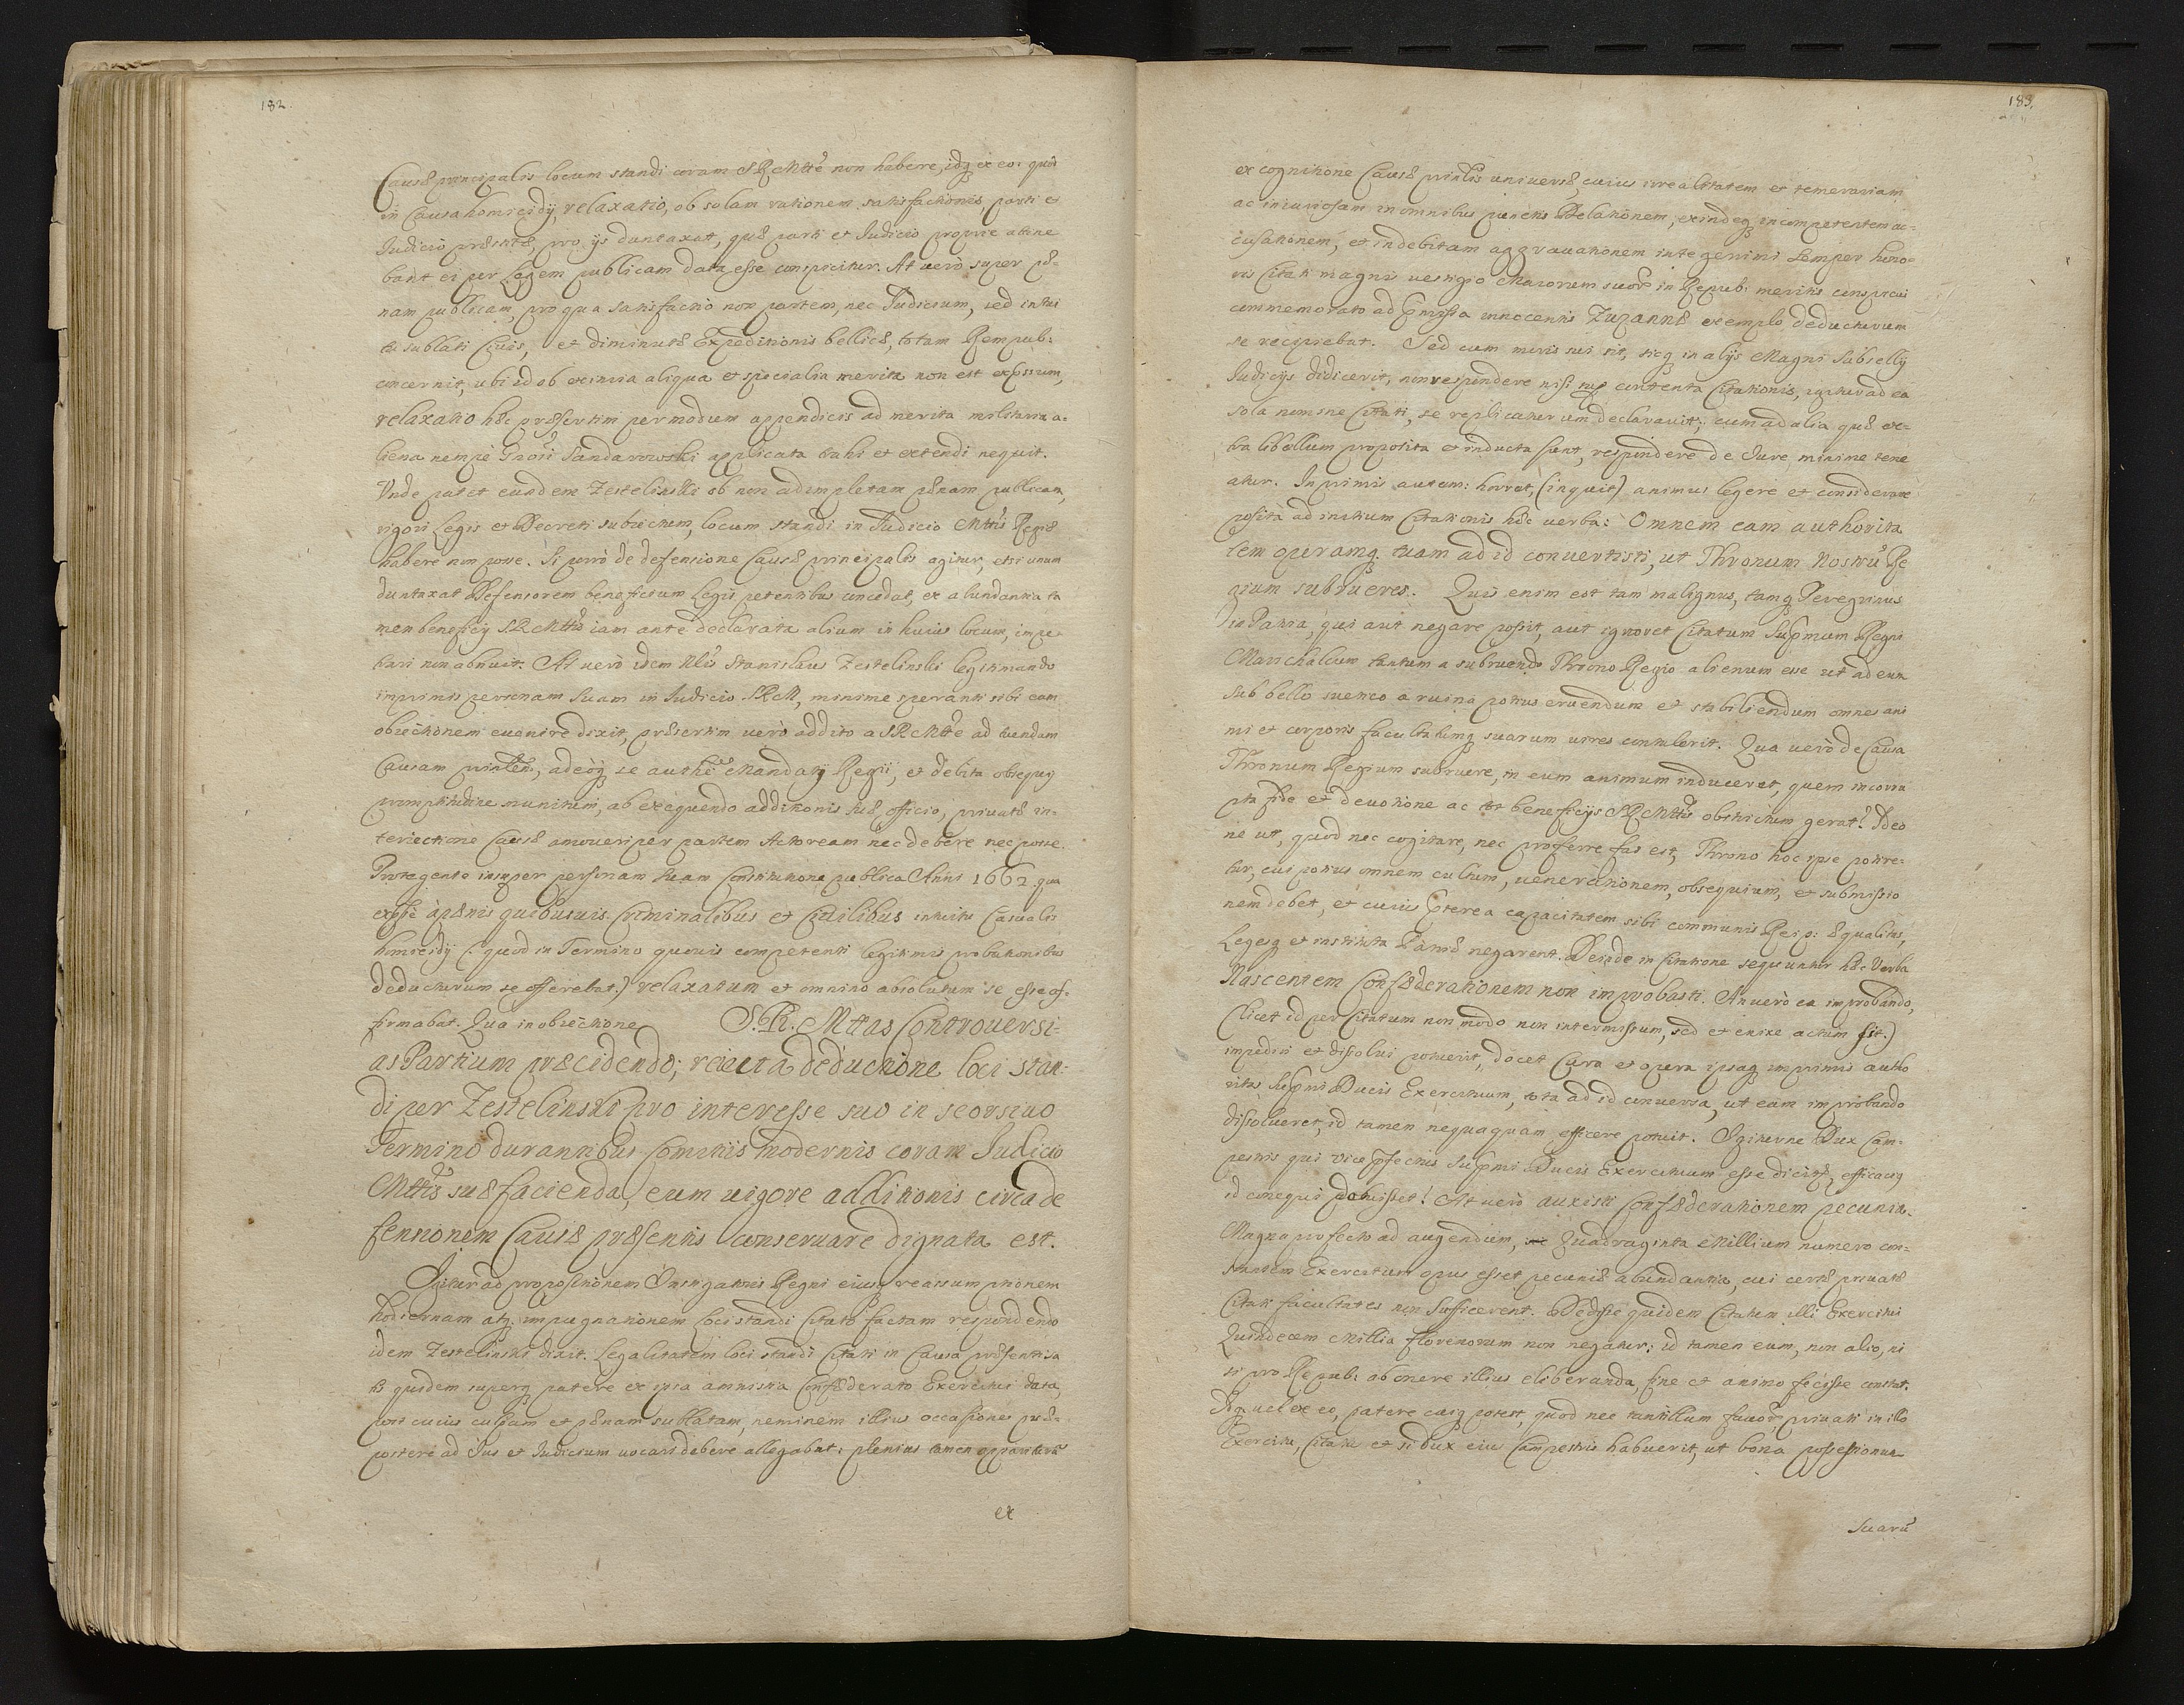 182.
Causæ principalis locum standi coram SRMtte non habere, idq ex eo: quod
in Causa homicidij relaxatio, ob solam rationem satisfactionis, parti et
Judicio præstitæ, pro ijs duntaxat, quæ parti et Judicio proprie attine
bant ei per Legem publicam data esse conspicitur. At verò super pæ-
nam publicam, pro qua satisfactio non partem, nec Judicium, sed intui
tu sublati Civis, et diminutæ Expeditionis bellicæ, totam Rempub:
concernit, ubi id ob eximia aliqua et specialia merita non est expssum,
relaxatio hæc præsertim per modum appendicis ad merita militaria a-
liena nempe Gnosi Sandarowski applicata trahi et extendi nequit.
Unde patet eundem Zestelinski ob non adimpletam pænam publicam,
rigori Legis et Decreti subiectum, locum standi in Judicio Mttis Regiæ
habere non posse. Si porrò de defensione Causæ principalis agitur, etsi unum
duntaxat Defensorem beneficium Legis petentibus concedat, ex abundantia ta
men beneficij SRMttis iam ante declarata alium in huius locum, impe-
trari non abnuit. At verò idem Nlis Stanislaus Zestelinski legitimando
inprimis personam suam in Judicio SRM, minime speranti sibi eam
obiectionem evenire dixit, præsertim verò addito a SRMtte ad tuendam
Causam printlem, adeoq se authte Mandati Regii, et debita obsequij
promptitudine munitum, ab exequendo additionis suæ officio, privatæ in-
teriectione Causæ amoveri per partem Actoream nec debere nec posse.
Protegente insuper personam suam Constitutione publica Anni 1662. qua
expsse à pænis quibusuis Criminalibus et Civilibus intuitu Casualis
homicidij (: quod in Termino quovis competenti legitimis probationibus
deducturum se offerebat.) relaxatum et omnino absolutum se esse af-
firmabat. Qua in obiectione S.R. Mttas Controversi-
as Partium præcidendo; reiectâ deductione loci stan-
di per Zestelinski pro interesse suo in seorsivo
Termino durantibus Comitiis modernis coram Judicio
Mttis suæ facienda, eum vigore additionis circa de
fensionem Causæ præsentis conservare dignata est.
Igitur ad propositionem Instigatoris Regni eiusq reassumptionem
hodiernam atq. impugnationem Loci standi Citato factam respondendo
idem Zestelinski dixit. Legalitatem loci standi Citati in Causa præsenti sa
tis quidem superq patere ex ipsa amnistia Confæderato Exercitui data,
post cuius culpam et pænam sublatam, neminem illius occasione præ-
postere ad Jus et Judicium vocari debere allegabat: plenius tamen appariturū
ex
183.
ex cognitione Causæ printlis universæ, cuius irrealitatem et temerariam
ac iniuriosam in omnibus punctis Delationem, exindeq incompetentem ac-
cusationem, et indebitam aggravationem integerrimi semper hono-
ris Citati magni vestigio Maiorum suor in Repub: meritis conspicui
commemorato ad pmissa innocentis Zuzannæ exemplo, deducturum
se recipiebat. Sed cum moris sui sit, sicq in alijs Magni Subsellij
Judicijs didicerit, non respondere nisi sup contenta Citationis, igitur ad ea
sola nomine Citati, se replicaturum declaravit; cum ad alia quæ ex-
tra libellum proposita et inducta sunt, respondere de Jure minime tene
atur. Inprimis autem: horret, (inquit) animus legere et considerare
posita ad initium Citationis hæc verba: Omnem eam authorita
tem operamq. tuam ad id convertisti, ut Thronum Nostrū Re
gium subrueres. Quis enim est tam malignus, tamq Peregrinus
in Patria, qui aut negare possit, aut ignoret Citatum Supmum Regni
Marschalcum tantum a subruendo Throno Regio alienum esse ut ad eum
sub bello suetico a ruina potius eruendum et stabiliendum omnes ani
mi et corporis facultatumq suarum vires contulerit. Qua verò de Causa
Thronum Regium subruere, in eum animum induceret, quem incorru
pta fide et devotione ac tot beneficijs SRMttis obstrictum gerat? Ideo
ne ut, quod nec cogitare, nec proferre fas est, Throno hoc ipse potire-
tur, cui potius omnem cultum, venerationem, obsequium, et submissio
nem debet, et cuius pterea capacitatem sibi communis Reip: æqualitas,
Legesq et instituta Patriæ negarent. Deinde in Citatione sequuntur hæc Verba
Nascentem Confæderationem non improbasti. An verò ea improbando,
(licet id per Citatum non modo non intermissum, sed et enixe actum sit.)
impediri et dissolvi potuerit, docet Cura et opera ipsaq inprimis autho
ritas Supmi Ducis Exercituum, tota ad id conversa, ut eam improbando
dissolveret, id tamen nequaquam efficere potuit. Igiturne Dux Cam-
pestris qui vice pfectus Supmi Ducis Exercituum esse dicitr, efficaciq
id consequi potuisset! At verò auxisti Confæderationem pecunia.
Magna profecto ad augendum, Quadraginta Millium numero con-
stantem Exercitum opus esset pecuniæ abundantia, cui certè privatæ
Citati facultates non sufficerent. Dedisse quidem Citatum illi Exercitui
Quindecem Millia florenorum non negatur: id tamen eum, non alio, ni
si pro Repub: ab onere illius eliberanda, fine et animo fecisse constat.
Atq vel ex eo, patere cuiq potest, quod nec tantillum favor privati in illo
Exercitu, Citatus etsi dux eius Campestris habuerit, ut bona possessionum
suarū